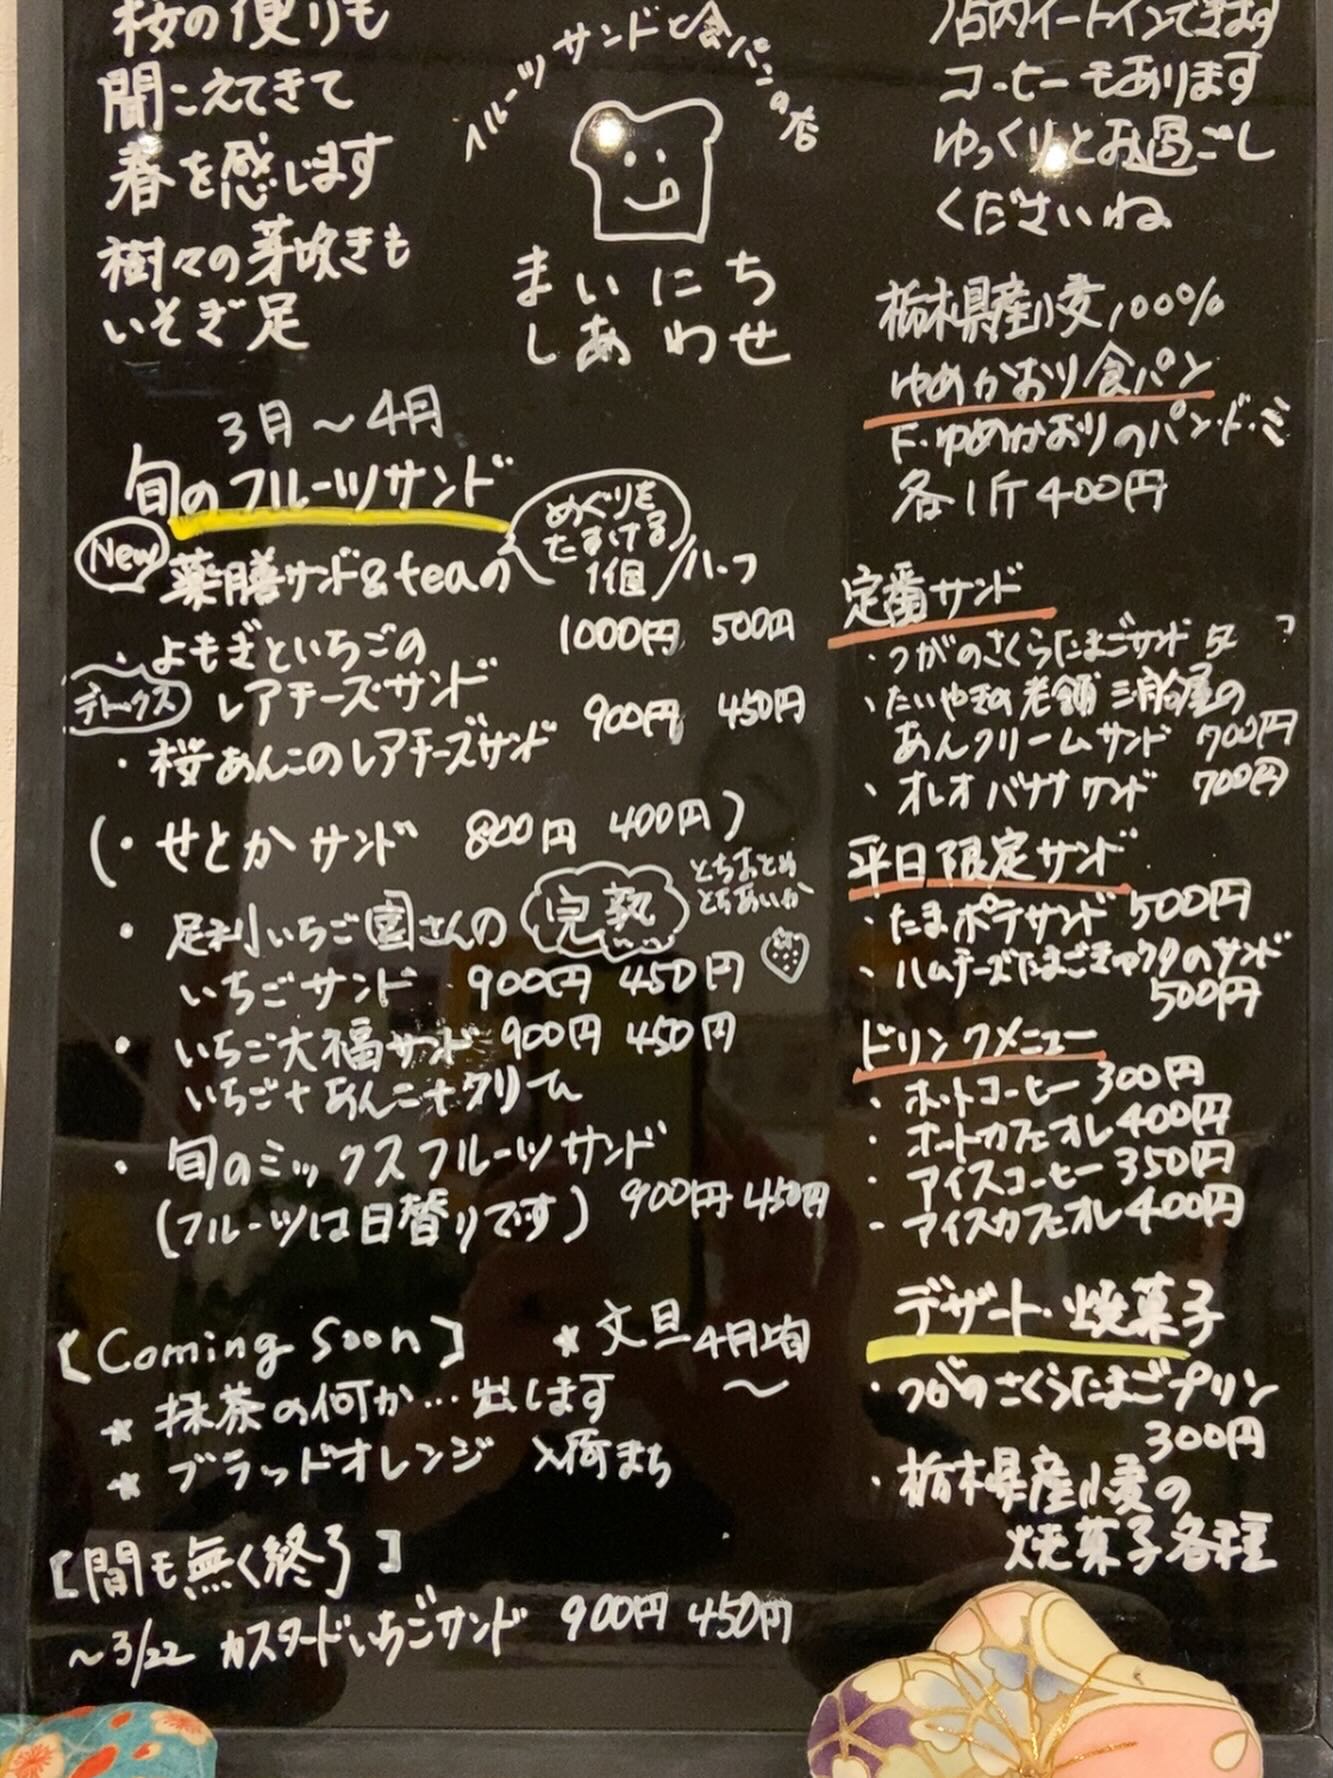 桜の便りも
聞こえてきて
春を感じます
樹々の芽吹きも
いそぎ足
フルーツサンドと食パンの店
まいにち
しあわせ
店内イートインできます
コーヒーもあります
ゆっくりとお過ごし
くださいね
3月〜4月
旬のフルーツサンド
New
薬膳サンド&teaの
めぐりを
たすける
1個/ハーフ
・よもぎといちごの
1000円 500円
デトックス
レアチーズサンド
・桜あんこのレアチーズサンド
900円 450円
(・せとかサンド 800円 400円)
・足利いちご園さんの 完熟
とちおとめ
とちあいか
いちごサンド 900円 450円
・いちご大福サンド 900円 450円
いちご+あんこ+クリーム
・旬のミックスフルーツサンド
(フルーツは日替りです) 900円 450円
[Coming Soon] ★文旦 4月上旬
〜
★抹茶の何か…出します
★ブラッドオレンジ 入荷まち
[間も無く終了]
〜3/22 カスタードいちごサンド 900円 450円
栃木県産小麦100%
ゆめかおり食パン
ゆめかおりのパン・ド・ミ
各1斤400円
定番サンド
・つがのさくらたまごサンド
・たいやきの老舗
あんクリームサンド 700円
・オレオバナナサンド 700円
平日限定サンド
・たまポテサンド 500円
・ハムチーズたまごきゅうりのサンド
500円
ドリンクメニュー
・ホットコーヒー 300円
・ホットカフェオレ 400円
・アイスコーヒー 350円
・アイスカフェオレ 400円
デザート・焼菓子
・つがのさくらたまごプリン
300円
・栃木県産小麦の
焼菓子各種